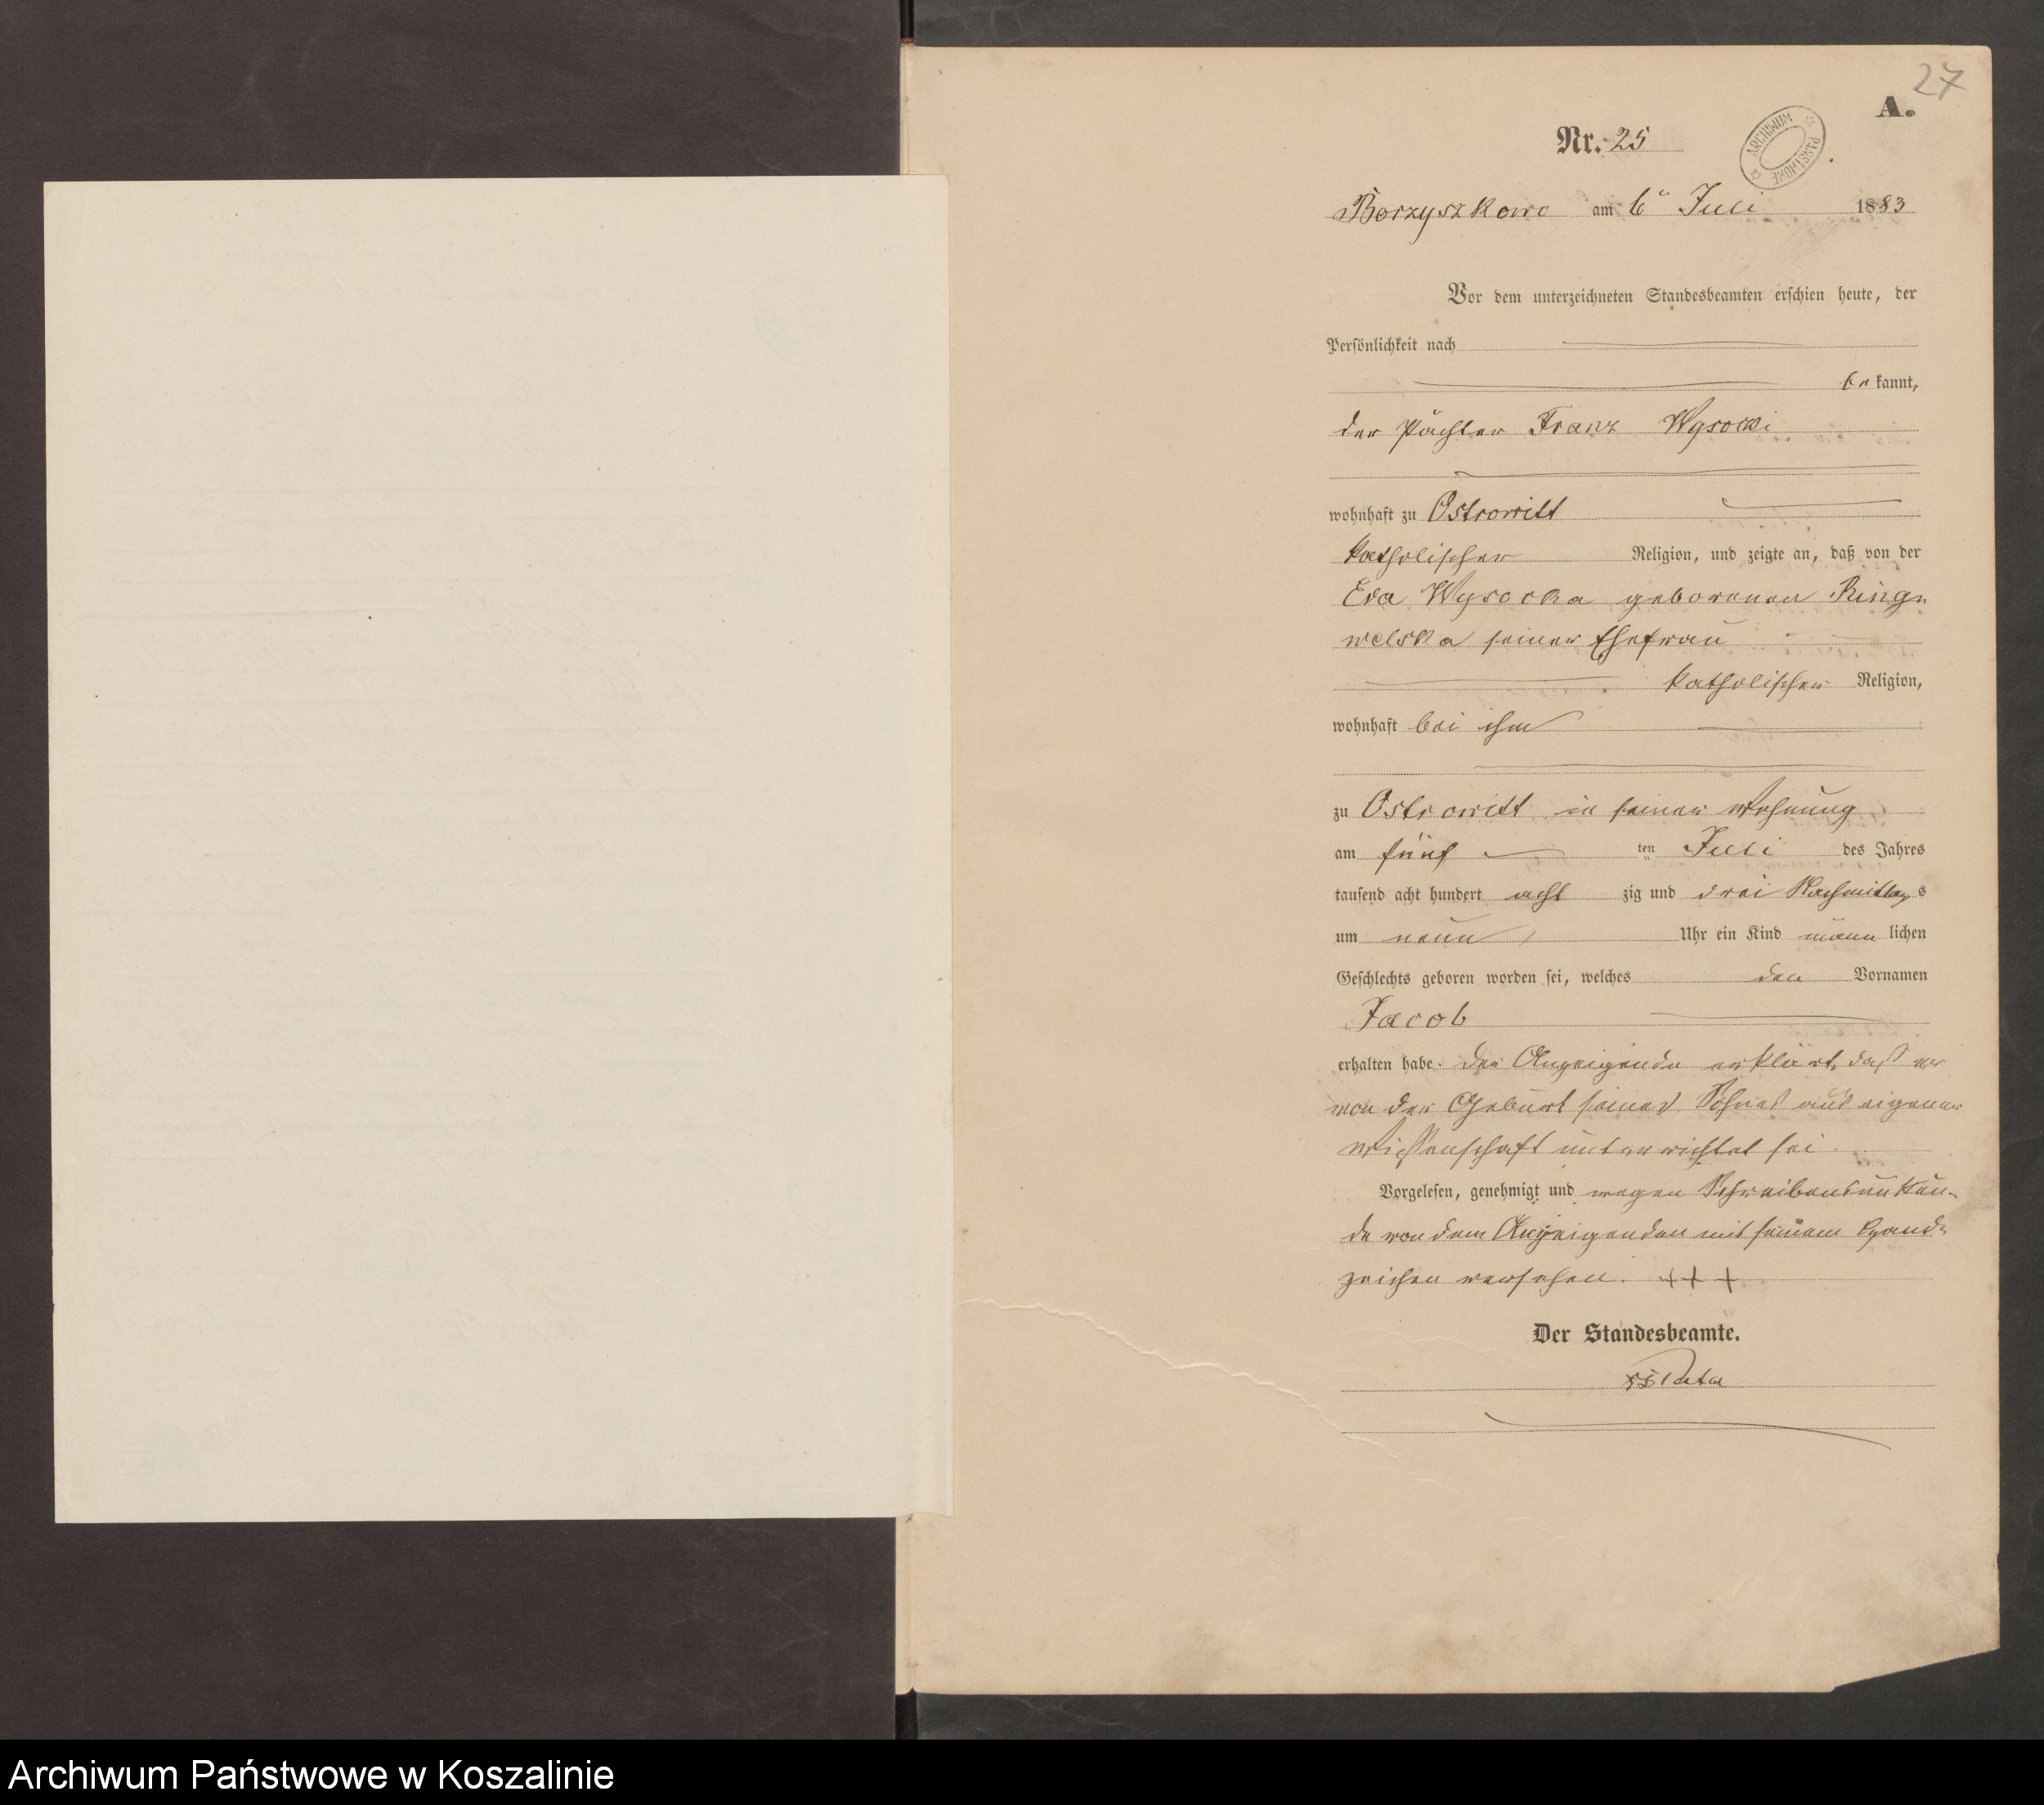 27
A.
ARCHIWUM PAŃSTWOWE
Nr. 25
Borzyszkowo am 6ͭ Juli 1883
Vor dem unterzeichneten Standesbeamten erschien heute, der
Persönlichkeit nach
be kannt,
der Pächter Franz Wysocki
wohnhaft zu Ostrowitt
katholischer Religion, und zeigte an, daß von der
Eva Wysocka geborenen Ring-
welska seiner Ehefrau
katholischer Religion,
wohnhaft bei ihm
zu Ostrowitt in seiner Wohnung
am fünf ten Juli des Jahres
tausend acht hundert acht zig und drei Nachmittag s
um neun Uhr ein Kind männ lichen
Geschlechts geboren worden sei, welches den Vornamen
Jacob
erhalten habe. Der Anzeigende erklärt, daß er
von der Geburt seines Sohnes aus eigener
Wissenschaft unterrichtet sei.
Vorgelesen, genehmigt und wegen Schreibensunkun-
de von dem Anzeigenden mit seinem Hand-
zeichen versehen. +++
Der Standesbeamte.
Archiwum Państwowe w Koszalinie